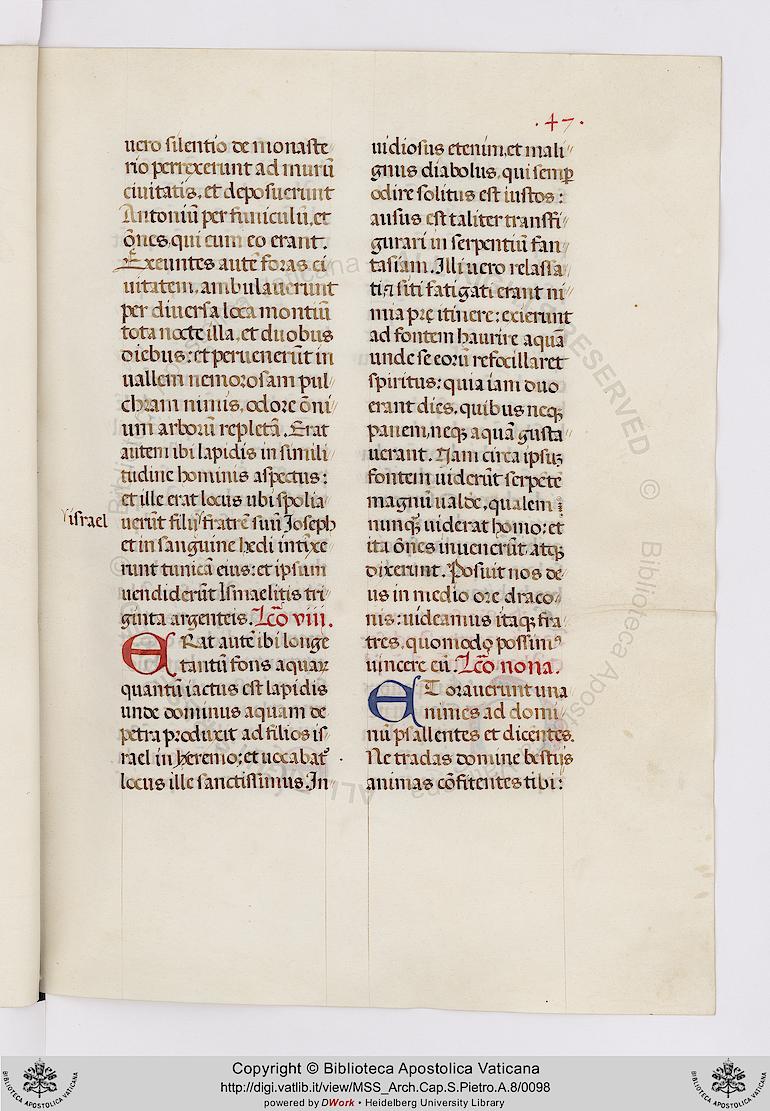 ·47·
uero silentio de monaste//
rio perrexerunt ad murũ
ciuitatis, et deposuerunt
Antoniũ per funiculũ, et
õnes, qui cum eo erant.
Exeuntes autẽ foras ci//
uitatem, ambulauerunt
per diuersa loca montiũ
tota nocte illa, et duobus
diebus: et peruenerũt in
uallem nemorosam pul//
chram nimis, odore õni//
um arborũ repletã. Erat
autem ibi lapidis in simili//
tudine hominis aspectus:
et ille erat locus ubi spolia//
israel
uerũt filij fratrẽ suũ Joseph
et in sanguine hedi intĩxe//
runt tunicã eius: et ipsum
uendiderũt Ismaelitis tri//
ginta argenteis. Lcõ viii.
ERat autẽ ibi longe
tantũ fons aquaꝝ
quantũ iactus est lapidis
unde dominus aquam de
petra produxit ad filios is//
rael in heremo: et uocabat᷑
locus ille sanctissimus. In//
uidiosus etenim, et mali//
gnus diabolus, qui semꝑ
odire solitus est iustos:
ausus est taliter transfi//
gurari in serpentiũ fan//
tasiam. Illi uero relassa//
ti ⁊ siti fatigati erant ni//
mia prę itinere: exierunt
ad fontem haurire aquã
unde se eorũ refocillaret
spiritus: quia iam duo
erant dies, quibus neqꝫ
panem, neqꝫ aquã gusta//
uerant. Nam circa ipsuꝫ
fontem uiderũt serpẽtẽ
magnũ ualde, qualem
nunqꝫ uiderat homo: et
ita õnes inuenerũt atqꝫ
dixerunt. Posuit nos de//
us in medio ore draco//
nis: uideamus itaqꝫ fra//
tres, quomodo possimꝰ
uincere eũ. Lcõ nona.
ET orauerunt una
nimes ad domi//
nũ psallentes et dicentes.
Ne tradas domine bestijs
animas cõfitentes tibi:
Copyright © Biblioteca Apostolica Vaticana
http://digi.vatlib.it/view/MSS_Arch.Cap.S.Pietro.A.8/0098
powered by DWork • Heidelberg University Library
BIBLIOTECA APOSTOLICA VATICANA
BIBLIOTECA APOSTOLICA VATICANA